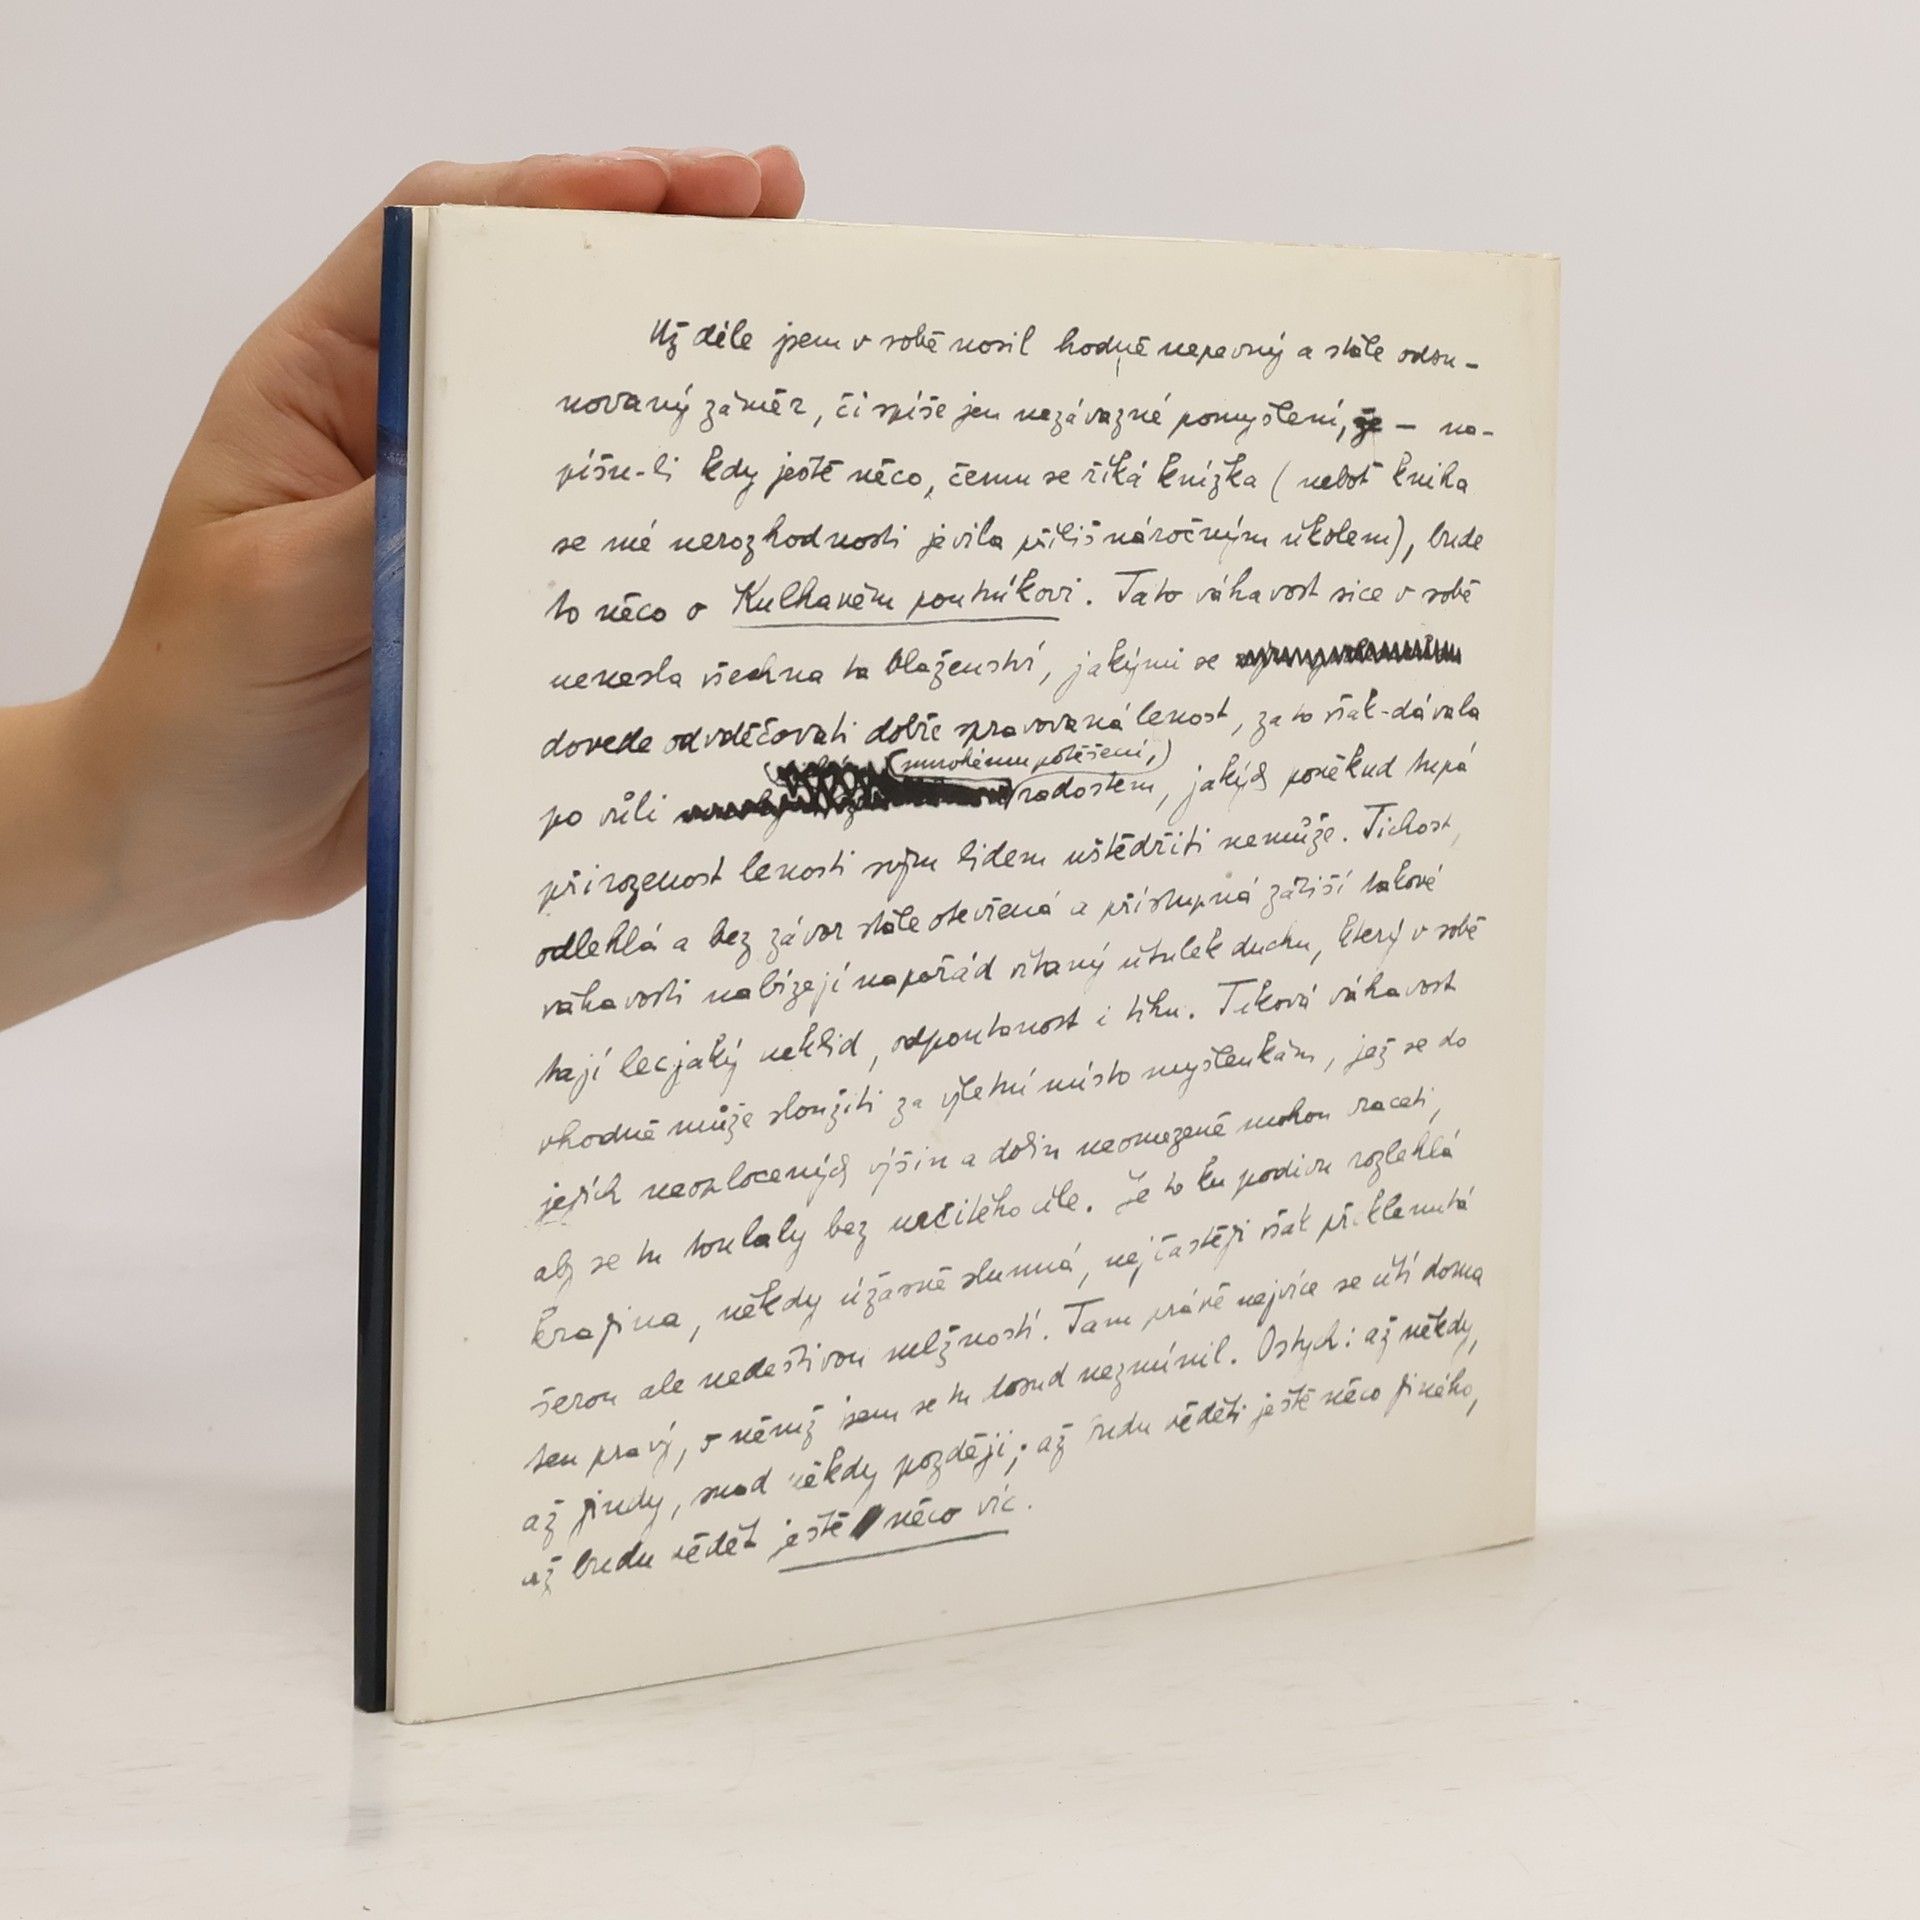 Už déle jsem v sobě nosil hodně nepevný a stále odsu-
novaný záměr, či spíše jen nezávazné pomyšlení, že — na-
píšu-li kdy ještě něco, čemu se říká knížka (neboť kniha
se mé nerozhodnosti jevila příliš náročným úkolem), bude
to něco o Kulhavém poutníkovi. Tato váhavost sice v sobě
nenesla všechna ta blaženství, jakými se
dovede odvděčovati dobře spravovaná lenost, za to však dávala
(mnohému potěšení,)
po vůli radostem, jakých poněkud tupá
přirozenost lenosti svým lidem uštědřiti nemůže. Tichost,
odlehlá a bez závor stále otevřená a přístupná zátiší takové
váhavosti nabízejí napořád vítaný útulek duchu, který v sobě
tají lecjaký neklid, odpoutanost i tíhu. Taková váhavost
vhodně může sloužiti za výletní místo myšlenkám, jež se do
jejích neoplocených výšin a dolin neomezeně mohou vraceti,
aby se tu toulaly bez určitého cíle. Je to ku podivu rozlehlá
krajina, někdy úžasně slunná, nejčastěji však přiklenutá
šerou ale nedeštivou mlžností. Tam právě nejvíce se cítí doma
ten pravý, o němž jsem se tu dosud nezmínil. Ostych: až někdy,
až jindy, snad někdy později; až budu věděti ještě něco jiného,
až budu vědět ještě něco víc.